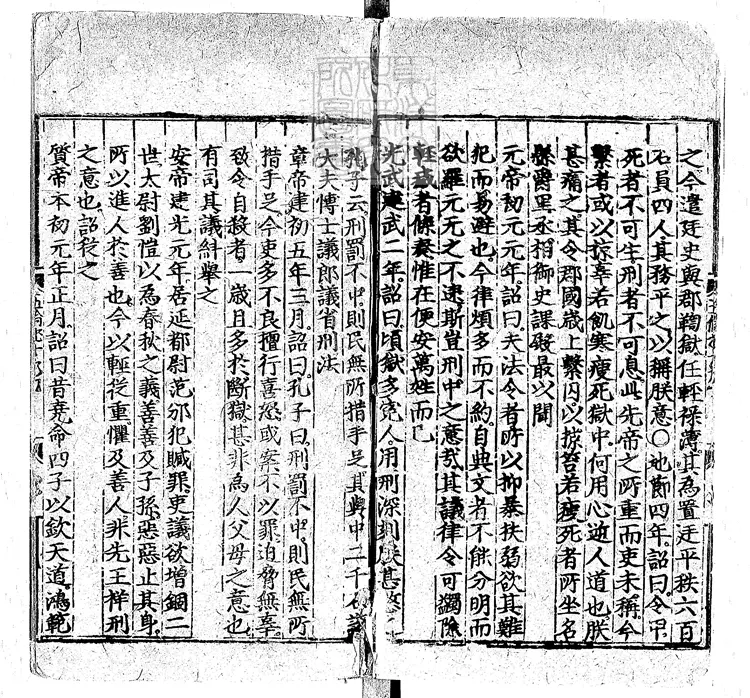 之今遣廷史與郡鞫獄任輕祿薄其為置廷平秩六百
石員四人其務平之以稱朕意〇地節四年詔曰令甲
死者不可生刑者不可息此先帝之所重而吏未稱今
繫者或以掠辜若飢寒瘦死獄中何用心逆人道也朕
甚痛之其令郡國歲上繫囚以掠笞若瘦死者所坐名
縣爵里丞相御史課礙最以聞
元帝初元元年詔曰夫法令者所以抑暴扶弱欲其難
犯而易避也今律煩多而不約自典文者不能分明而
欲羅元元之不逮斯豈刑中之意哉其議律令可蠲除
輕减者條奏惟在便安萬姓而已
光武建武二年詔曰頃獄多冤人用刑深刻朕甚愍之
孔子云刑罰不中則民無所措手足其與中二千石諸
大夫博士議郎議省刑法
章帝建初五年三月詔曰孔子曰刑罰不中則民無所
措手足今吏多不良擅行喜怒或案不以罪迫脅無辜
致令自殺者一歲且多於斷獄甚非為人父母之意也
有司其議糾舉之
安帝建光元年居延都尉范邠犯贓罪吏議欲增錮二
世太尉劉愷以為春秋之義善善及子孫惡惡止其身
所以進人於善也今以輕從重懼及善人非先王祥刑
之意也詔從之
質帝本初元年正月詔曰昔堯命四子以欽天道鴻範